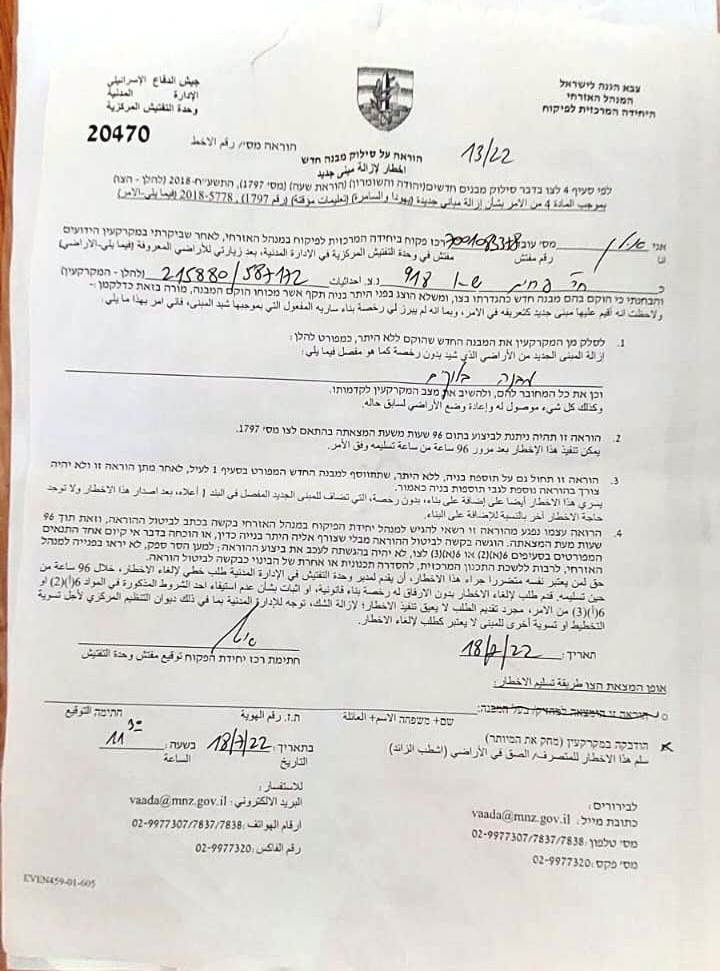 جيش الدفاع الإسرائيلي
الإدارة المدنية
وحدة التفتيش المركزية
צבא הגנה לישראל
המנהל האזרחי
היחידה המרכזית לפיקוח
20470
הוראה מס'/ رقم الاخطار
13/22
הוראה על סילוק מבנה חדש
اخطار لإزالة مبنى جديد
לפי סעיף 4 לצו בדבר סילוק מבנים חדשים(יהודה והשומרון) (הוראת שעה) (מס' 1797), התשע"ח-2018 (להלן - הצו)
بموجب المادة 4 من الأمر بشأن إزالة مباني جديدة (يهودا والسامرة) (تعليمات مؤقتة) (رقم 1797) , 5778-2018 (فيما يلي-الامر)
אני מס' עובד רכז פקוח ביחידה המרכזית לפיקוח במנהל האזרחי, לאחר שביקרתי במקרקעין הידועים
انا رقم مفتش مفتش في وحدة التفتيش المركزية في الإدارة المدنية, بعد زيارتي للأراضي المعروفة (فيما يلي-الاراضي)
כ נ.צ. احداثيات 215880/587172 (להלן - המקרקעין)
והבחנתי כי הוקם בהם מבנה חדש כהגדרתו בצו, ומשלא הוצג בפני היתר בניה תקף אשר מכוחו הוקם המבנה, מורה בזאת כדלקמן :-
ولاحظت انه أقيم عليها مبنى جديد كتعريفه في الامر, وبما انه لم يبرز لي رخصة بناء ساريه المفعول التي بموجبها شيد المبنى, فأني امر بهذا ما يلي:
1. לסלק מן המקרקעין את המבנה החדש שהוקם ללא היתר, כמפורט להלן:
إزالة المبنى الجديد من الأراضي الذي شيد بدون رخصة كما هو مفصل فيما يلي:
מבנה
וכן את כל המחובר להם, ולהשיב את מצב המקרקעין לקדמותו.
وكذلك كل شيء موصول له وإعادة وضع الأراضي لسابق حاله.
2. הוראה זו תהיה ניתנת לביצוע בתום 96 שעות משעת המצאתה בהתאם לצו מס' 1797.
يمكن تنفيذ هذا الإخطار بعد مرور 96 ساعة من ساعة تسليمه وفق الأمر.
3. הוראה זו תחול גם על תוספת בניה, ללא היתר, שתתווסף למבנה החדש המפורט בסעיף 1 לעיל, לאחר מתן הוראה זו ולא יהיה
צורך בהוראה נוספת לגבי תוספות בניה כאמור.
يسري هذا الاخطار أيضا على إضافة على بناء, بدون رخصة, التي تضاف للمبنى الجديد المفصل في البند 1 أعلاه, بعد اصدار هذا الاخطار ولا توجد
حاجة الاخطار آخر بالنسبة للاضافة على البناء.
4. הרואה עצמו נפגע מהוראה זו רשאי להגיש למנהל יחידת הפיקוח במנהל האזרחי בקשה בכתב לביטול ההוראה, וזאת תוך 96
שעות מעת המצאתה. הוגשה בקשה לביטול ההוראה מבלי שצורף אליה היתר בנייה כדין, או הוכחה בדבר אי קיום אחד התנאים
המפורטים בסעיפים 6(א)(2) או 6(א)(3) לצו, לא יהיה בהגשתה לעכב את ביצוע ההוראה; למען הסר ספק, לא יראו בפנייה למנהל
האזרחי, לרבות ללשכת התכנון המרכזית, להסדרה תכנונית או אחרת של הבינוי כבקשה לביטול הוראה.
حق لمن يعتبر نفسه متضررا جراء هذا الاخطار, أن يقدم لمدير وحدة التفتيش في الإدارة المدنية طلب خطي لإلغاء الاخطار, خلال 96 ساعة من
حين تسليمه. قدم طلب لإلغاء الاخطار بدون الارفاق له رخصة بناء قانونية, او اثبات بشأن عدم استيفاء احد الشروط المذكورة في المواد 6(أ)(2) او
6(أ)(3) من الامر, مجرد تقديم الطلب لا يعيق تنفيذ الاخطار; لإزالة الشك, توجه للإدارة المدنية بما في ذلك ديوان التنظيم المركزي لأجل تسوية
التخطيط او تسوية أخرى للمبنى لا يعتبر كطلب لإلغاء الاخطار.
תאריך : 18/7/22
חתימת רכז יחידת הפקוח توقيع مفتش وحدة التفتيش
אופן המצאת הצו طريقة تسليم الاخطار:
שם+ משפחה الاسم+ العائلة
ת.ז. رقم الهوية
חתימה التوقيع
הודבקה במקרקעין (מחק את המיותר)
سلم هذا الاخطار للمتصرف/ الصق في الأراضي (اشطب الزائد)
בתאריך: 18/7/22 בשעה: 11 30
التاريخ الساعة
לבירורים :
כתובת מייל : vaada@mnz.gov.il
מס' טלפון :02-9977307/7837/7838
מס' פקס :02-9977320
للاستفسار :
البريد الالكتروني : vaada@mnz.gov.il
ارقام الهواتف :02-9977307/7837/7838
رقم الفاكس :02-9977320
EVEN459-01-605